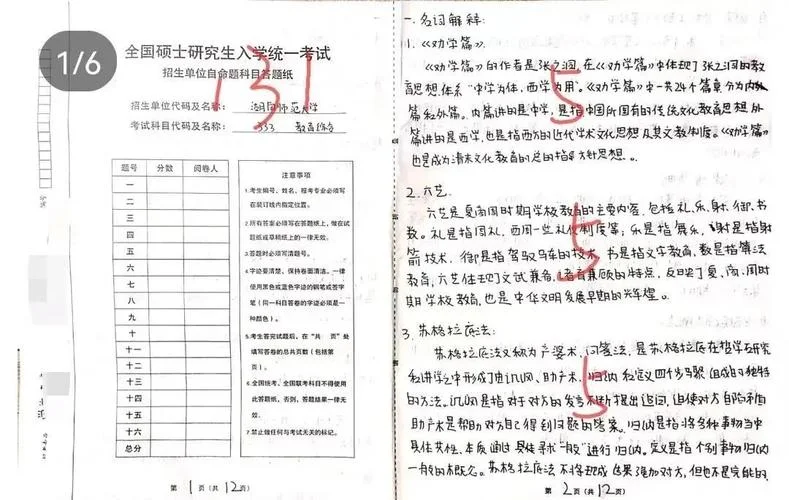 1/6
全国硕士研究生入学统一考试
招生单位自命题科目答题纸
131
招生单位代码及名称: 湖南师范大学
考试科目代码及名称: 333 教育综合
题号 分数 阅卷人
一
二
三
四
五
六
七
八
九
十
十一
十二
十三
十四
十五
十六
总分
注意事项
1.考生编号、姓名、报考专业必须写
在装订线内指定位置。
2.所有答案必须写在答题纸上,做在试
题纸或草稿纸上的一律无效。
3.答题时必须写清题号。
4.字迹要清楚,保持卷面清洁。一律
使用黑色或蓝色字迹的钢笔或签字
笔(同一科目答卷的字迹必须是一
种颜色)。
5.考生答完试题后,在“共 页”处
填写答卷的总共页数(包括第
页)。
6.全国统考、全国联考科目不得使用
此答题纸,否则,答题结果一律无
效。
7.禁止做任何与考试无关的标记。
第1页(共12页)
一.名词解释:
1.《劝学篇》.
《劝学篇》的作者是张之洞,在《劝学篇》中体现了张之洞的教
育思想体系“中学为体,西学为用”。《劝学篇》中一共24个篇章分为内
篇和外篇。内篇讲的是中学,是指中国所固有的传统文化教育思想 外
篇讲的是西学,也是指西方的近代学术文化思想及其文教制度。《劝学篇》
也是成为清末文化教育的总的指导方针思想。
5
2.六艺.
六艺是夏商周时期学校教育的主要内容,包括礼、乐、射、御、书、
数。礼是指周礼、西周一些礼仪制度等;乐是指舞乐,射是指射
箭技术,御是指驾驭马车的技术,书是指文字教育,数是指算法
教育,六艺体现了文武兼备,诸育兼顾的特点,反映了夏、商、周时
期学校教育,也是中华文明发展早期的光辉。
5
3.苏格拉底法:
苏格拉底法又称为产婆术、问答法,是苏格拉底在哲学研究
和讲学之中形成了由讥讽、助产术、归纳和定义四个步骤组成的独特
的方法。讥讽是指对于对方的发言不断提出追问,迫使对方自陷矛盾
助产术是帮助对方自己得到问题的答案。归纳是指将各种事物当中
具体共性、本质通过具体寻求“一般”进行归纳。定义是指个别事物归纳
一般的概念。苏格拉底法不将现成结果强加对方,但也不是万能的.
5
第2页(共12页)